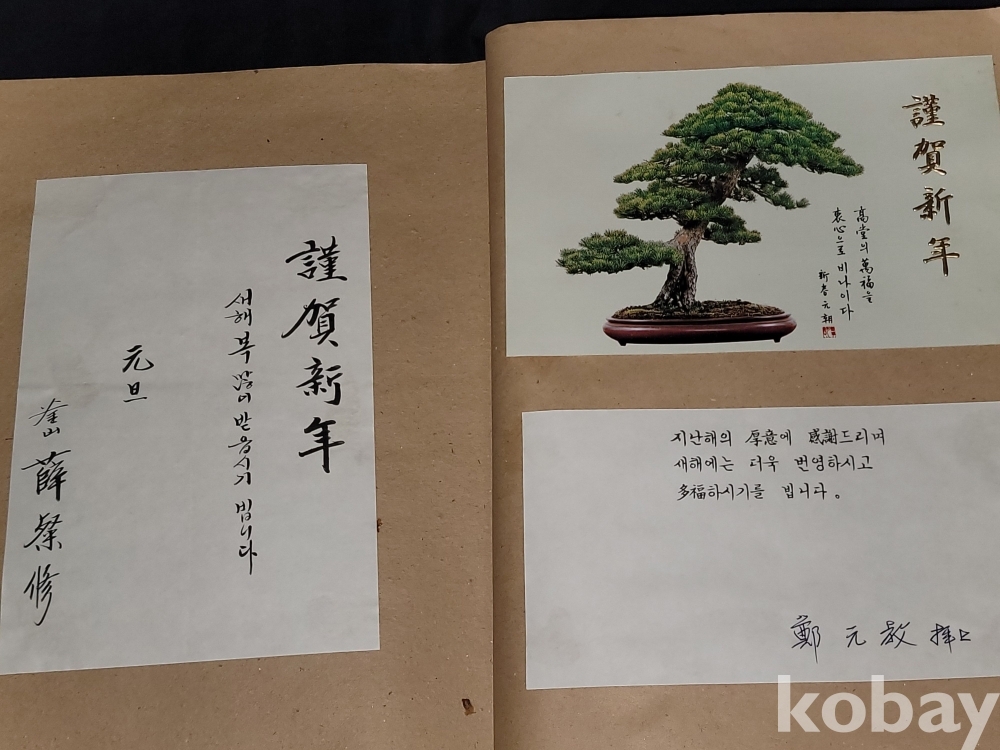 謹賀新年
새해 복 많이 받읍시기 빕니다
元旦
釜山 薛祭修
謹賀新年
高堂의 萬福을
衷心으로 비나이다
新春元朝
지난해의 厚意에 感謝드리며
새해에는 더욱 번영하시고
多福하시기를 빕니다。
鄭元敎 拜上
kobay